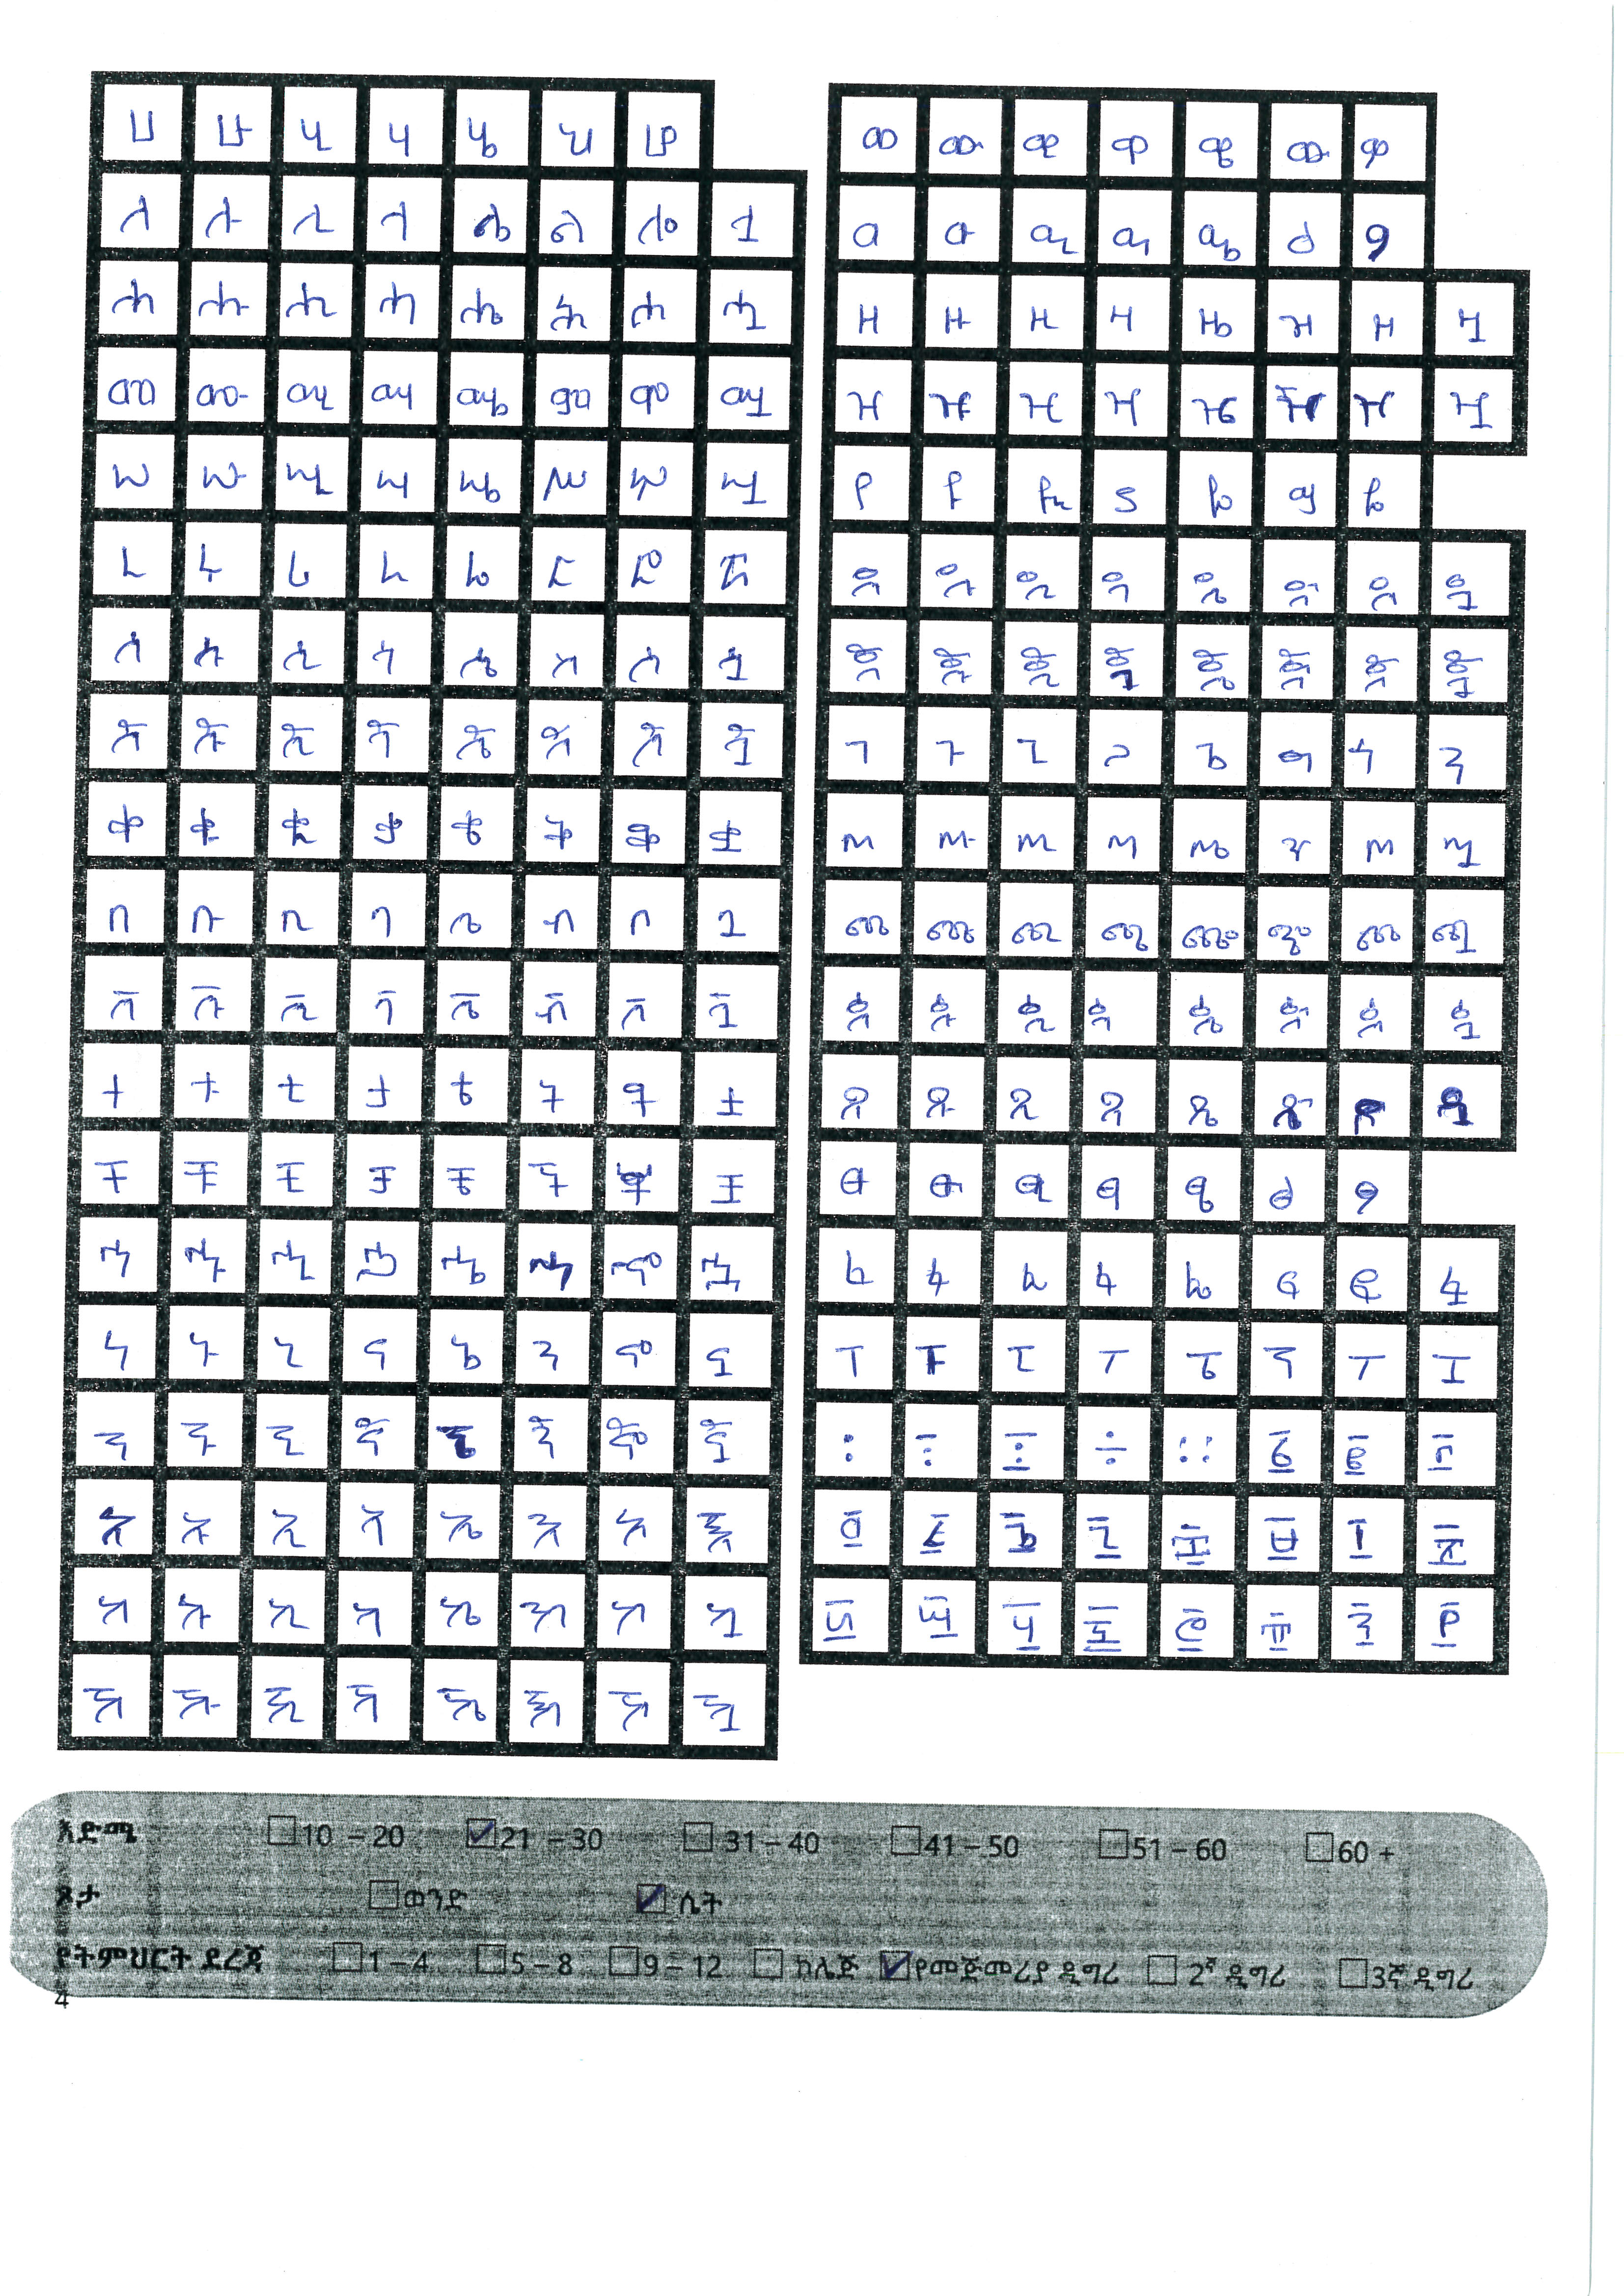 ሀ ሁ ሂ ሃ ሄ ህ ሆ
ለ ሉ ሊ ላ ሌ ል ሎ ሏ
ሐ ሑ ሒ ሓ ሔ ሕ ሖ ሗ
መ ሙ ሚ ማ ሜ ም ሞ ሟ
ሠ ሡ ሢ ሣ ሤ ሥ ሦ ሧ
ረ ሩ ሪ ራ ሬ ር ሮ ሯ
ሰ ሱ ሲ ሳ ሴ ስ ሶ ሷ
ሸ ሹ ሺ ሻ ሼ ሽ ሾ ሿ
ቀ ቁ ቂ ቃ ቄ ቅ ቆ ቋ
በ ቡ ቢ ባ ቤ ብ ቦ ቧ
ቨ ቩ ቪ ቫ ቬ ቭ ቮ ቯ
ተ ቱ ቲ ታ ቴ ት ቶ ቷ
ቸ ቹ ቺ ቻ ቼ ች ቾ ቿ
ኀ ኁ ኂ ኃ ኄ ኅ ኆ ኋ
ነ ኑ ኒ ና ኔ ን ኖ ኗ
ኘ ኙ ኚ ኛ ኜ ኝ ኞ ኟ
አ ኡ ኢ ኣ ኤ እ ኦ ኧ
ከ ኩ ኪ ካ ኬ ክ ኮ ኳ
ኸ ኹ ኺ ኻ ኼ ኽ ኾ ዃ
ወ ዉ ዊ ዋ ዌ ው ዎ
ዐ ዑ ዒ ዓ ዔ ዕ ዖ
ዘ ዙ ዚ ዛ ዜ ዝ ዞ ዟ
ዠ ዡ ዢ ዣ ዤ ዥ ዦ ዧ
የ ዩ ዪ ያ ዬ ይ ዮ
ደ ዱ ዲ ዳ ዴ ድ ዶ ዷ
ጀ ጁ ጂ ጃ ጄ ጅ ጆ ጇ
ገ ጉ ጊ ጋ ጌ ግ ጎ ጓ
ጠ ጡ ጢ ጣ ጤ ጥ ጦ ጧ
ጨ ጩ ጪ ጫ ጬ ጭ ጮ ጯ
ጰ ጱ ጲ ጳ ጴ ጵ ጶ ጷ
ጸ ጹ ጺ ጻ ጼ ጽ ጾ ጿ
ፀ ፁ ፂ ፃ ፄ ፅ ፆ
ፈ ፉ ፊ ፋ ፌ ፍ ፎ ፏ
ፐ ፑ ፒ ፓ ፔ ፕ ፖ ፗ
፡ ፤ ÷ ፡፡ ፩ ፪ ፫
፬ ፭ ፮ ፯ ፰ ፱ ፲ ፳
፴ ፵ ፶ ፷ ፸ ፹ ፺ ፻
እድሜ 10 – 20 21 – 30 31 – 40 41 – 50 51 – 60 60 +
ጾታ ወንድ ሴት
የትምህርት ደረጃ 1 – 4 5 – 8 9 – 12 ኮሌጅ የመጀመሪያ ዲግሪ 2ኛ ዲግሪ 3ኛ ዲግሪ
4